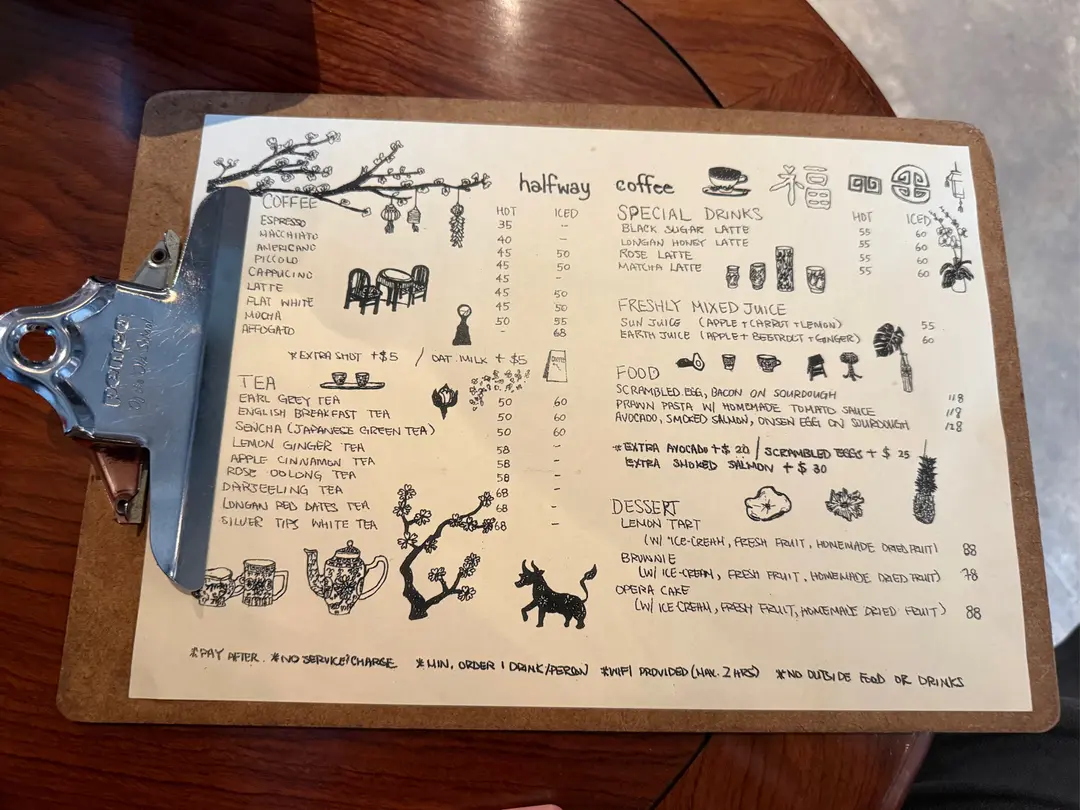 halfway coffee 福
COFFEE HOT ICED
ESPRESSO 35 --
MACCHIATO 40 -
AMERICANO 45 50
PICCOLO 45 50
CAPPUCINO 45
LATTE 45 50
FLAT WHITE 45 50
MOCHA 50 55
AFFOGATO - 68
*EXTRA SHOT +$5 / OAT MILK + $5
TEA
EARL GREY TEA 50 60
ENGLISH BREAKFAST TEA 50 60
SENCHA (JAPANESE GREEN TEA) 50 60
LEMON GINGER TEA 58 -
APPLE CINNAMON TEA 58 -
ROSE OOLONG TEA 58 -
DARJEELING TEA 68 -
LONGAN RED DATES TEA 68 -
SILVER TIPS WHITE TEA 68 -
SPECIAL DRINKS HOT ICED
BLACK SUGAR LATTE 55 60
LONGAN HONEY LATTE 55 60
ROSE LATTE 55 60
MATCHA LATTE 55 60
FRESHLY MIXED JUICE
SUN JUICE (APPLE + CARROT + LEMON) 55
EARTH JUICE (APPLE + BEETROOT + GINGER) 60
FOOD
SCRAMBLED EGG, BACON ON SOURDOUGH 118
PRAWN PASTA W/ HOMEMADE TOMATO SAUCE 118
AVOCADO, SMOKED SALMON, ONSEN EGG ON SOURDOUGH 128
*EXTRA AVOCADO +$ 20 / SCRAMBLED EGGS + $ 25
EXTRA SMOKED SALMON + $ 30
DESSERT
LEMON TART
(W/ ICE-CREAM, FRESH FRUIT, HOMEMADE DRIED FRUIT) 88
BROWNIE
(W/ ICE-CREAM, FRESH FRUIT, HOMEMADE DRIED FRUIT) 78
OPERA CAKE
(W/ ICE CREAM, FRESH FRUIT, HOMEMADE DRIED FRUIT) 88
*PAY AFTER. *NO SERVICE CHARGE *MIN. ORDER 1 DRINK/PERSON *WIFI PROVIDED (MAX. 2 HRS) *NO OUTSIDE FOOD OR DRINKS